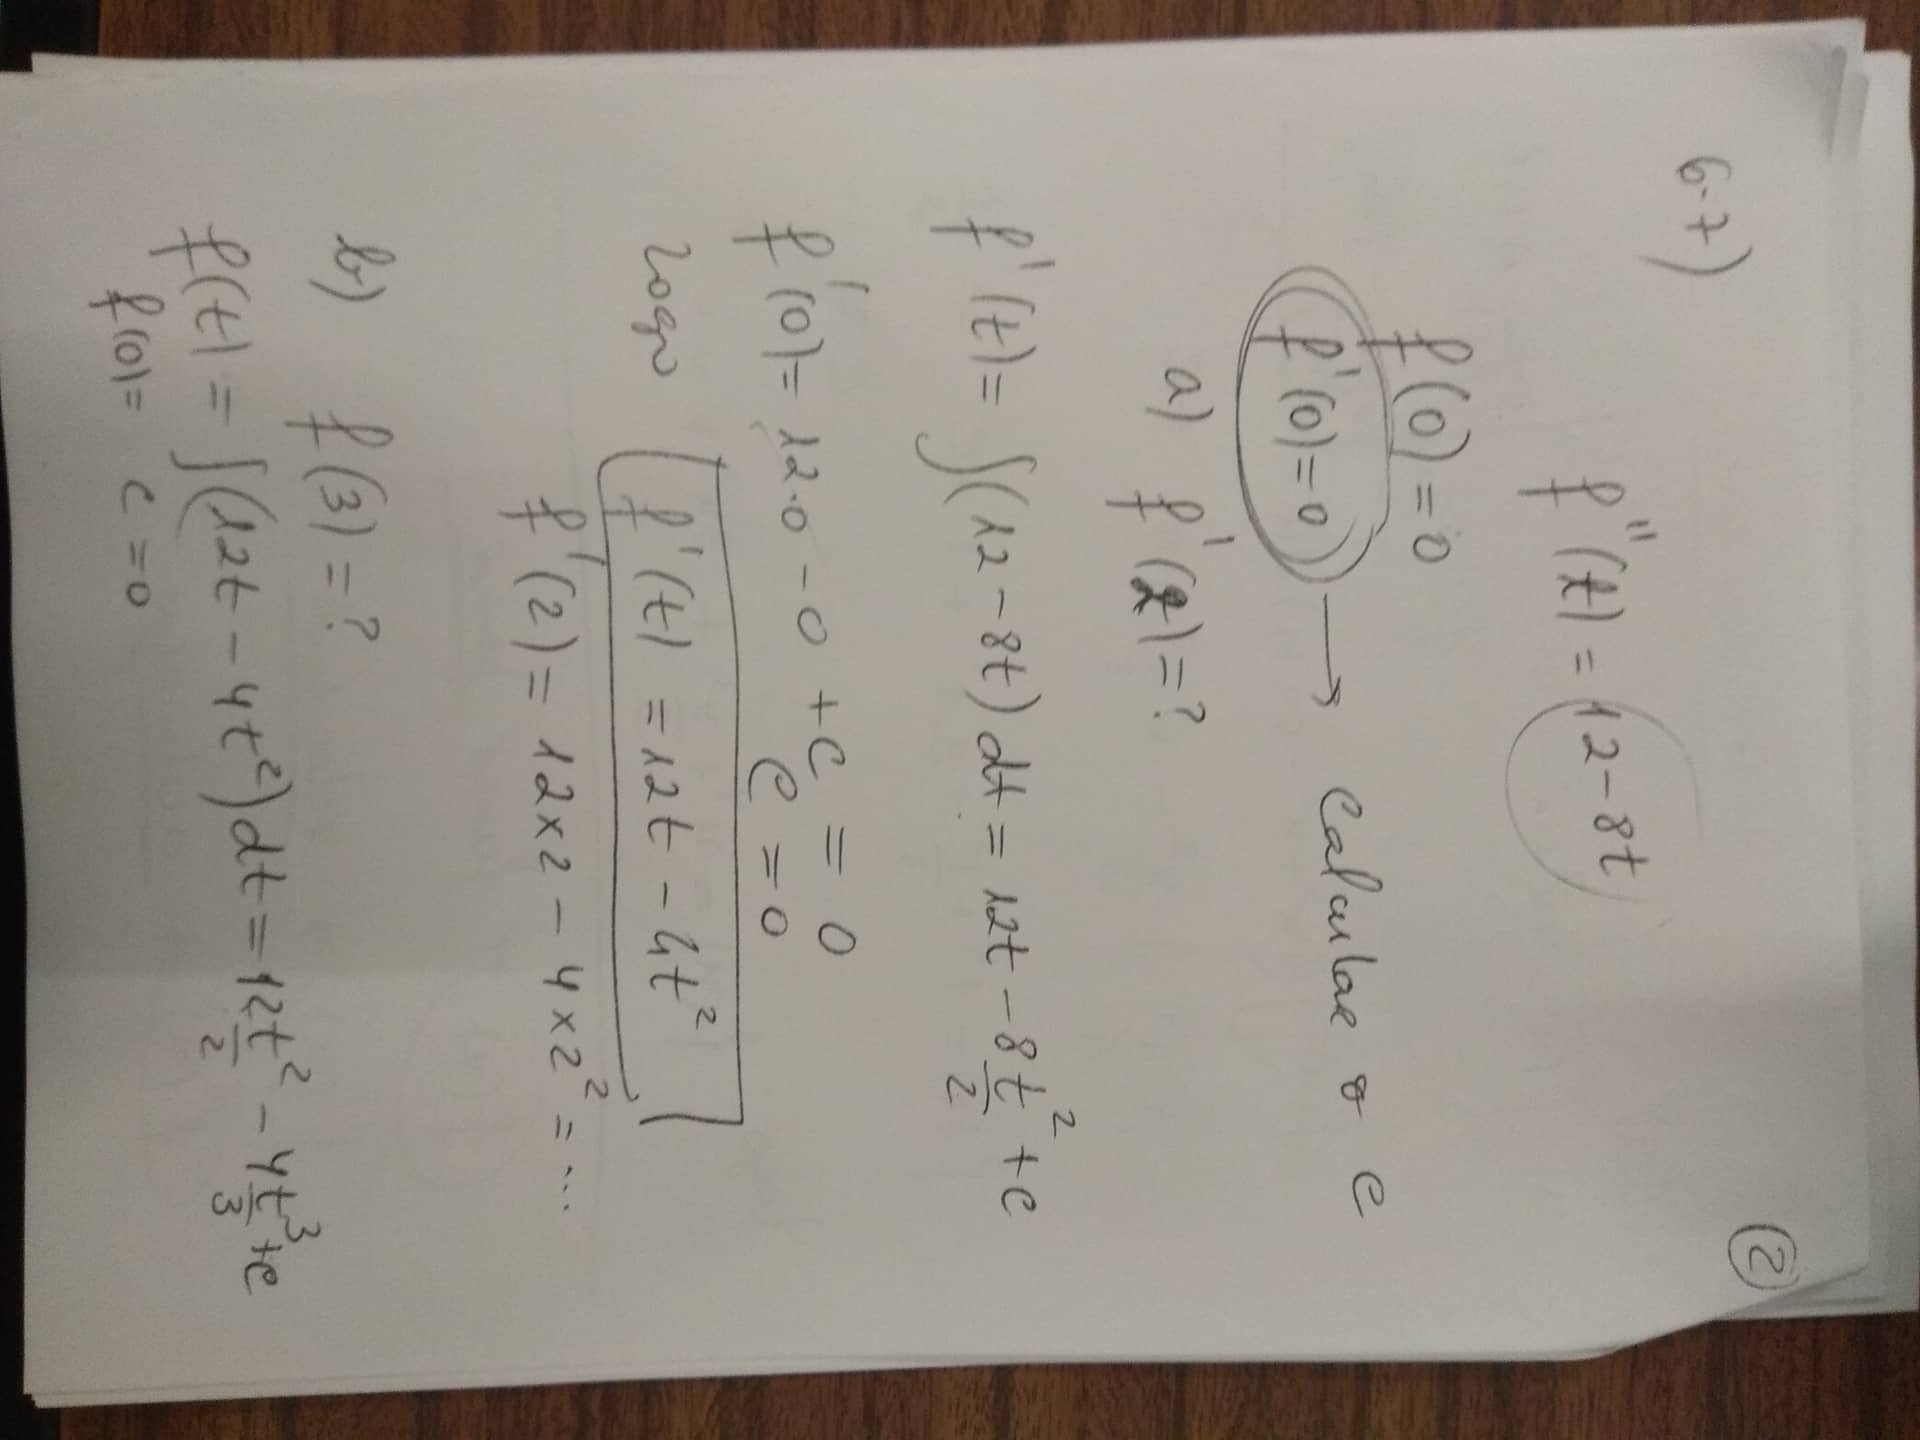 ②
6-7)
f''(t) = 12-8t
f(0) = 0
f'(0)=0 → Calcular o c
a) f'(2)=?
f'(t)= ∫(12-8t) dt = 12t - 8 t²/2 + c
f'(0)= 12.0 - 0 + c = 0
c = 0
Logo f'(t) = 12t - 4t²
f'(2)= 12×2 - 4×2² = ...
b) f(3)=?
f(t) = ∫(12t - 4t²)dt = 12 t²/2 - 4 t³/3 + c
f(0)= c = 0